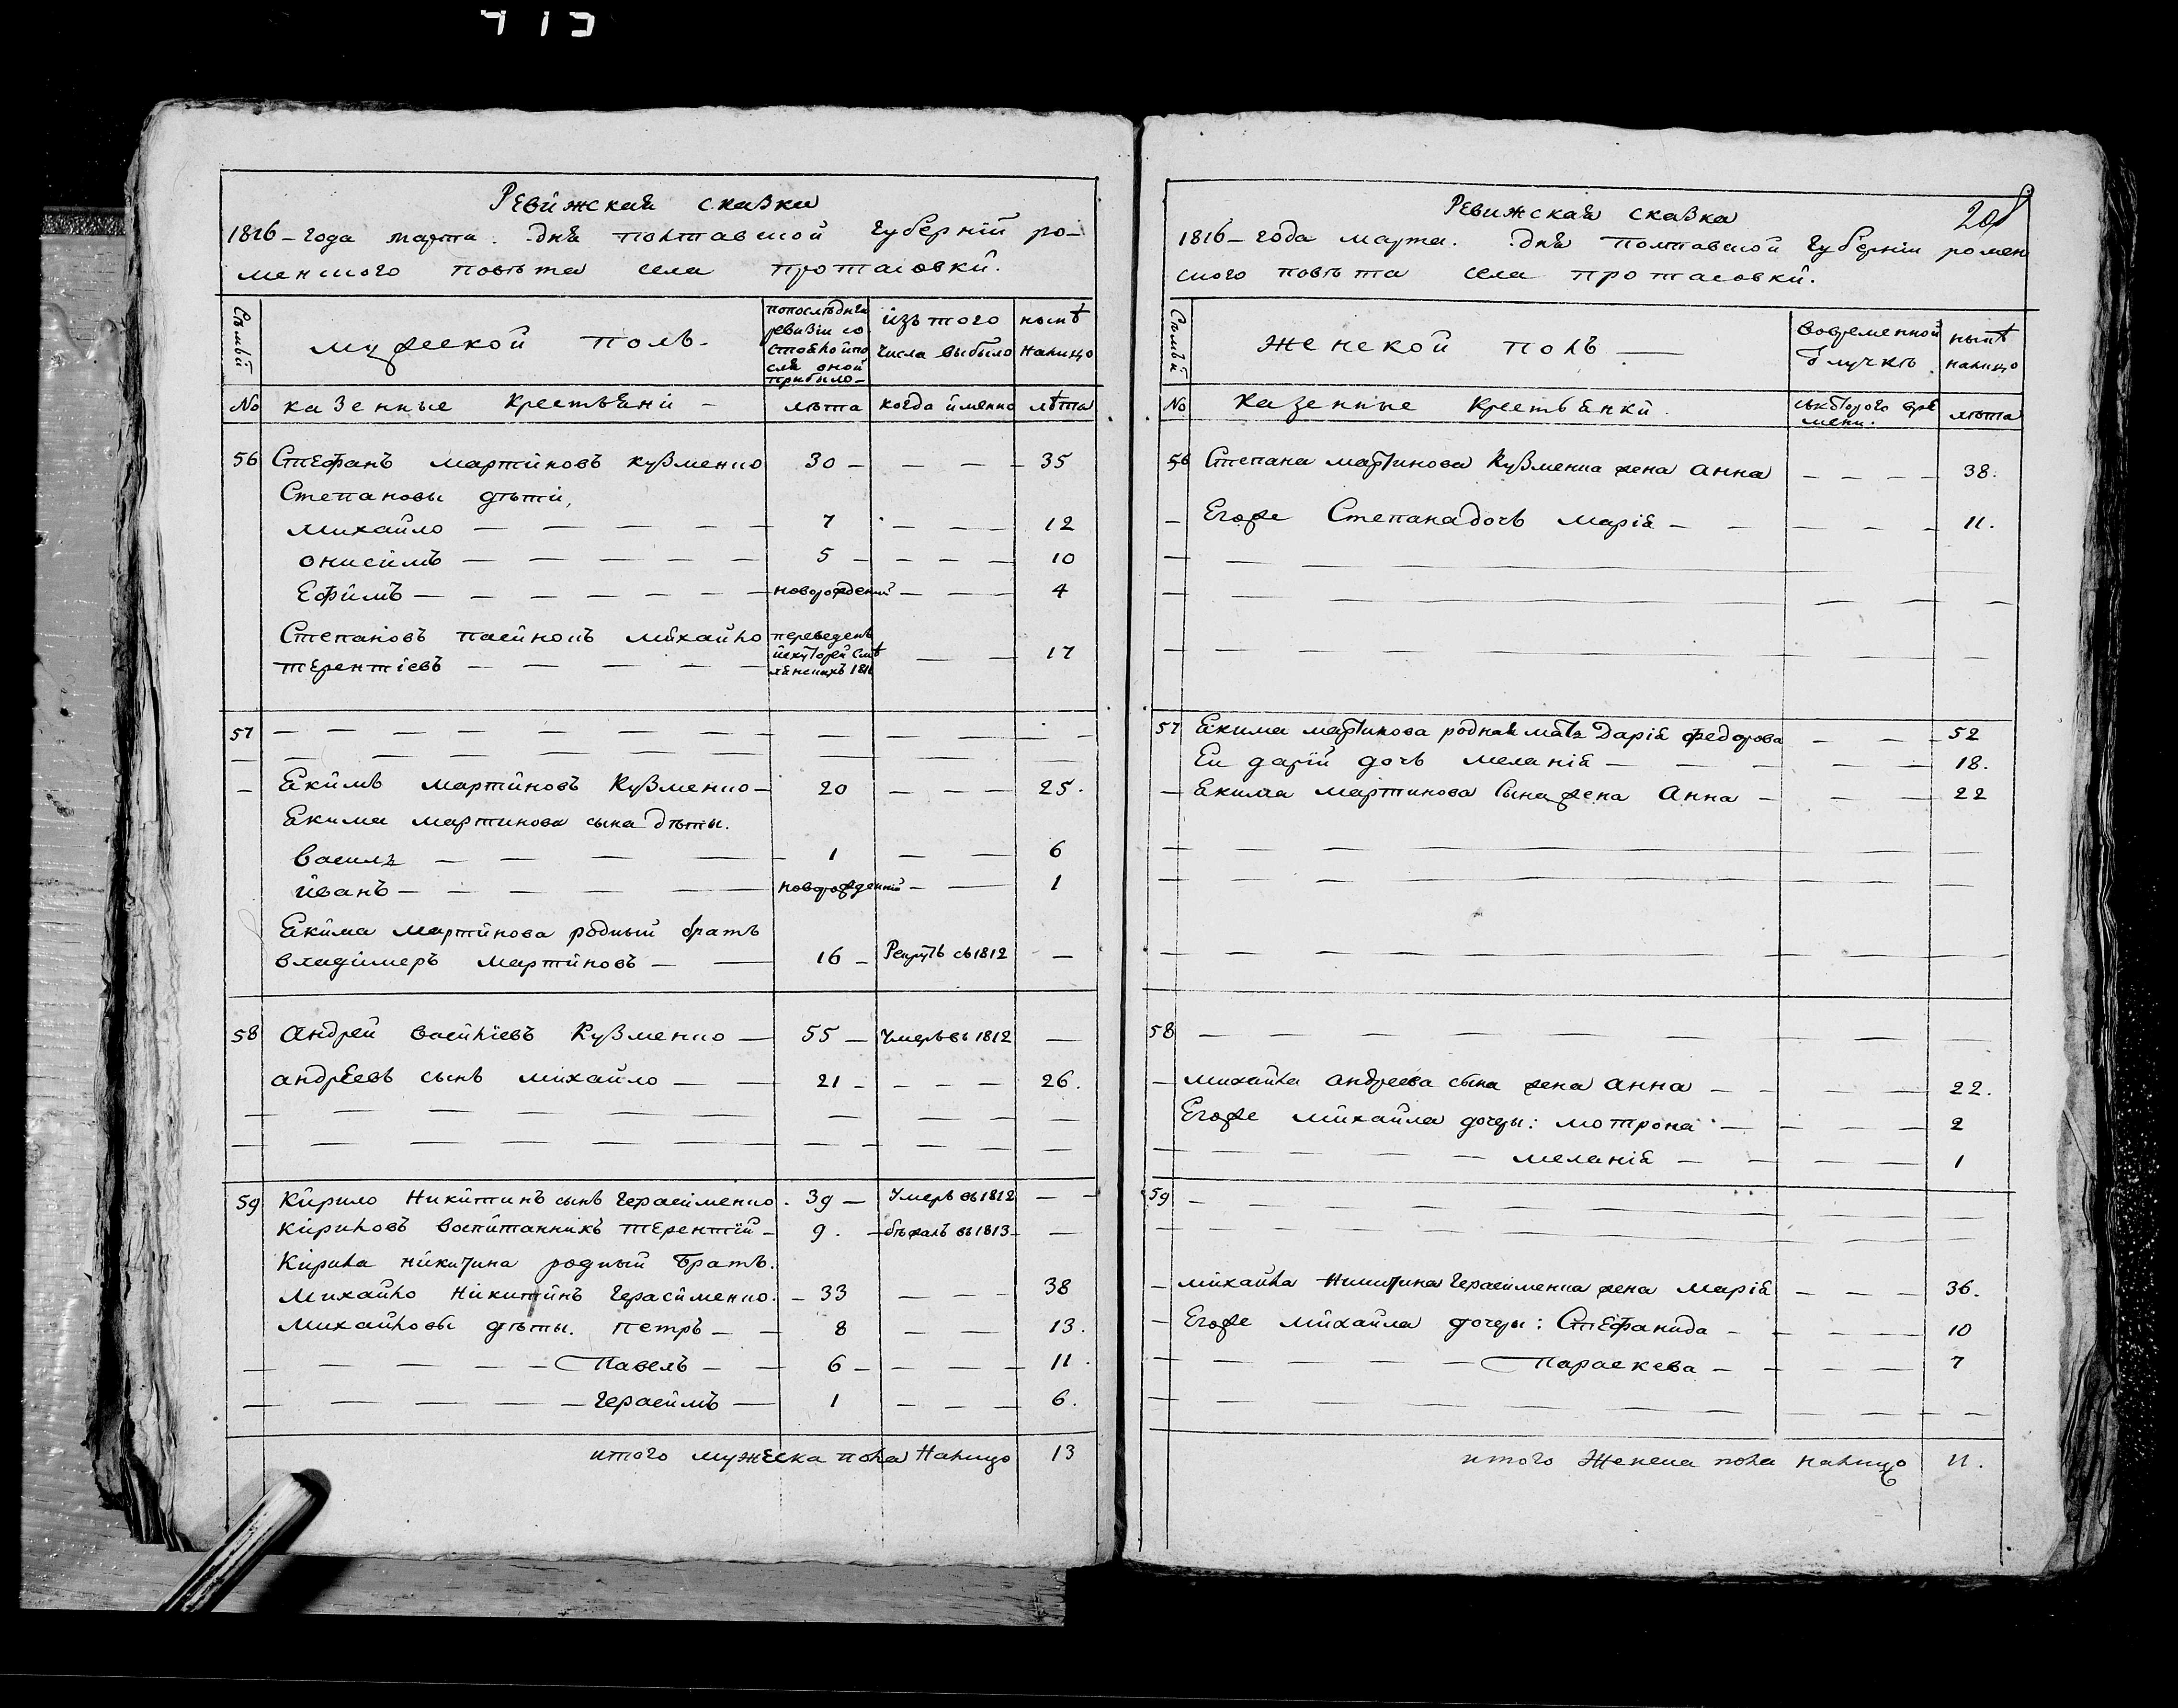 Ревижская сказка
1816 – года марта . дня полтавской губерній ро-
менского повѣта села протасовки.
Семьи
мужеской полъ.
попоследнеи
ревизіи со
стояло ипо
сле оной
прибыло –
изъ того
числа выбыло
нынѣ
налицо
No казенные крестьяни – лѣта когда именно лѣта
56 Стефанъ мартиновъ кузменко 30 – – – – 35
Степановы дѣти,
михайло — — — — — 7 – – – 12
онисимъ — — — — — 5 – – – – 10
Ефимъ — — — — — новорожденій — — — 4
Степановъ пасинокъ михайло переведенъ
терентіевъ — — — — — 1811 — — 17
57 — — — — — — — — — — —
— Екимъ мартиновъ Кузменко – 20 – – – 25.
Екима мартинова сына дѣты.
василь — — — — 1 — — 6
иванъ — — — — новорожденній – — 1
Екима мартинова родный братъ
владимеръ мартиновъ — — 16 – Рекрутъ съ 1812 —
58 Андрей васильевъ Кузменко — 55 – Умеръ въ 1812 —
андреевъ сынъ михайло — — 21 – – – – 26.
— — — — — — — — — —
— — — — — — — — — —
59 Кирило Никитинъ сынъ герасименко. 39 – Умеръ въ 1812 — –
кириловъ воспитанникъ терентій – 9. – бѣжалъ въ 1813 – —
Кирила никитина родный братъ.
Михайло Никитинъ герасименко. – 33 – – – 38
михайловы дѣты. петръ — — 8 — — 13.
— — — — — — Павелъ — — 6 – – – – 11.
— — — — — — герасимъ — 1 – – – 6.
итого мужеска пола Налицо 13
Ревижская сказка 208
1816 – года марта. дня полтавской губерніи ромен
ского повѣта села протасовки.
Семьи
женской полъ —
вовременной
отлучкѣ
нынѣ
налицо
No казенные крестьянки. съкоторого вре
мени. лѣта
56 Степана мартинова Кузменка жена анна – – – – 38.
– Егоже Степана дочь марія – – – – – 11.
57 Екима мартинова родная мать Дарія федорова – – – 52
Еи дарій дочь меланія — — — — — — 18.
— Екима мартинова сына жена Анна – – — 22
58 — — — — — — — — — —
– михайла андреева сына жена анна — — — — 22.
Егоже михайла дочеры: мотрона — – – – 2
— — — — — — меланія — — — — 1
59 — — — — — — — — —
– михайла Никитина герасименка жена марія – – – 36.
– Егоже михайла дочеры: Стефанида – – – – 10
— — — — — — Параскева — – – – 7
итого женска пола налицо 11.